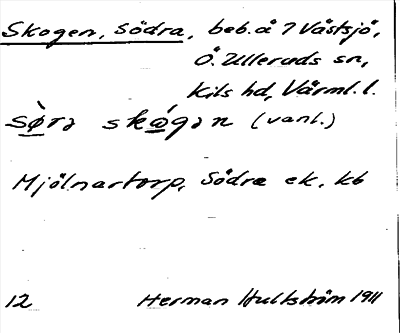 Skogen, Södra, beb. å 7 Våstsjö,
Ö. Ulleruds sn,
Kils hd, Värml. l.
sø̀rə skǿgən (vanl.)
Mjölnartorp, Södra ek. kb
12 Herman Hultström 1911